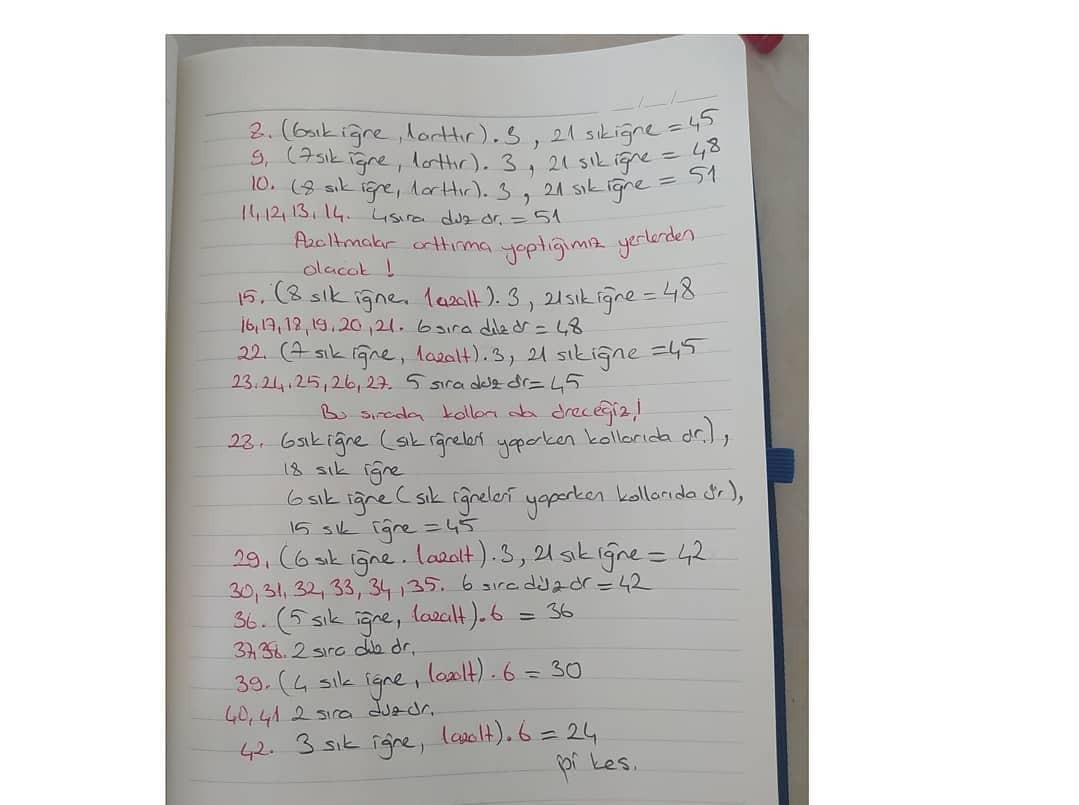 8. (6 sık iğne, 1 arttır). 3, 21 sık iğne = 45
9. (7 sık iğne, 1 arttır). 3, 21 sık iğne = 48
10. (8 sık iğne, 1 arttır). 3, 21 sık iğne = 51
11, 12, 13, 14. 4 sıra düz ör. = 51
Azaltmalar arttırma yaptığımız yerlerden
olacak !
15. (8 sık iğne. 1 azalt). 3, 21 sık iğne = 48
16, 17, 18, 19, 20, 21. 6 sıra düz ör = 48
22. (7 sık iğne, 1 azalt). 3, 21 sık iğne = 45
23, 24, 25, 26, 27. 5 sıra düz ör = 45
Bu sırada kolları da öreceğiz!
28. 6 sık iğne (sık iğneleri yaparken kollarıda ör.),
18 sık iğne
6 sık iğne (sık iğneleri yaparken kollarıda ör.),
15 sık iğne = 45
29. (6 sık iğne. 1 azalt). 3, 21 sık iğne = 42
30, 31, 32, 33, 34, 35. 6 sıra düz ör = 42
36. (5 sık iğne, 1 azalt). 6 = 36
37, 38. 2 sıra düz ör.
39. (4 sık iğne, 1 azalt). 6 = 30
40, 41 2 sıra düz ör.
42. 3 sık iğne, 1 azalt). 6 = 24
ipi kes.